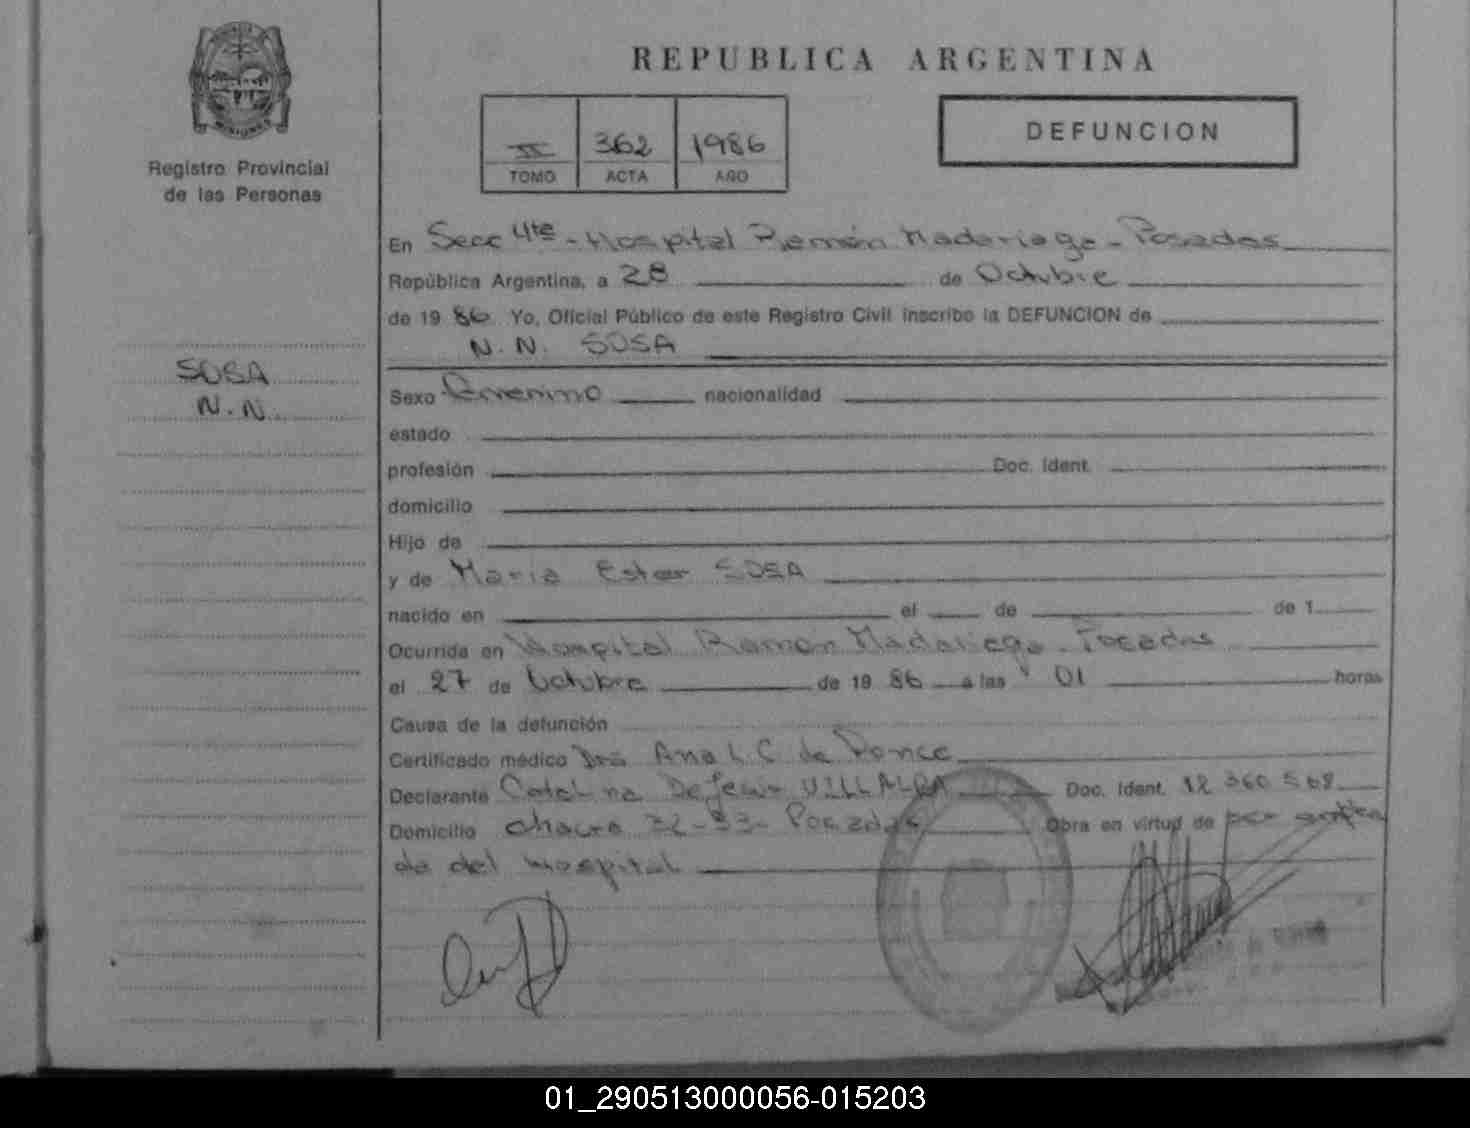 MISIONES
Registro Provincial
de las Personas
SOSA
N.N.
REPUBLICA ARGENTINA
II 362 1986
TOMO ACTA AÑO
DEFUNCION
En Secc 4ta - Hospital Ramón Madariaga - Posadas
República Argentina, a 28 de Octubre
de 19 86 Yo, Oficial Público de este Registro Civil inscribo la DEFUNCION de
N. N. SOSA
Sexo nacionalidad
estado
profesión Doc. Ident.
domicilio
Hijo de
y de Maria Ester SOSA
nacido en el de de 1
Ocurrida en Hospital Ramón Madariaga - Posadas
el 27 de Octubre de 19 86 a las 01 horas
Causa de la defunción
Certificado médico Dra Ana L. C de Ponce
Declarante Catalina De Jesus VILLALBA Doc. Ident. 12 360 568
Domicilio chacra 32-33- Posadas Obra en virtud de ser emplea
da del Hospital
01_290513000056-015203